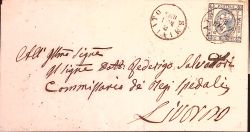 All' Illmo Signe
Il Signe Dott. Federigo Salvatori
Commissario dei Regi Spedali
Livorno